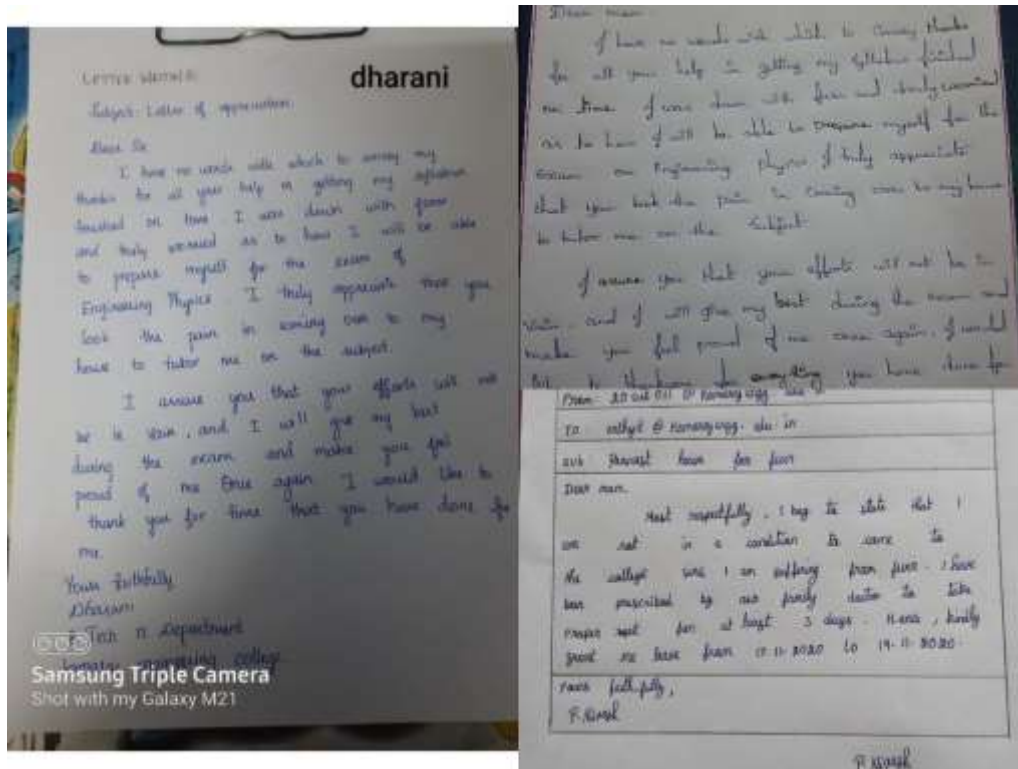 LETTER WRITING
dharani
Subject: Letter of appreciation.
Dear Sir
I have no words with which to convey my
thanks for all your help in getting my syllabus
finished on time. I was down with fever
and truly worried as to how I will be able
to prepare myself for the exam of
Engineering Physics. I truly appreciate that you
took the pain in coming over to my
house to tutor me on the subject.
I assure you that your efforts will not
be in vain, and I will give my best
during the exam and make you feel
proud of me Once again I would like to
thank you for time that you have done for
me.
Yours faithfully
Dharani
Tech IT Department
engineering college
Samsung Triple Camera
Shot with my Galaxy M21
Dear mam.
I have no words with which to convey thanks
for all your help in getting my syllabus finished
on time. I was down with fever and truly worried
as to how I will be able to prepare myself for the
exam on Engineering physics I truly appreciate
that you took the pain in coming over to my house
to tutor me on the subject.
I assure you that your efforts will not be in
vain. and I will give my best during the exam and
make you feel proud of me once again. I would
to thank you for everything you have done for
From
To
sub Request leave for fever
Dear mam,
Most respectfully, I beg to state that I
am not in a condition to come to
the college since I am suffering from fever. I have
been prescribed by our family doctor to take
proper rest for at least 3 days. Hence, kindly
grant me leave from 17-11-2020 to 19-11-2020.
Yours faithfully,